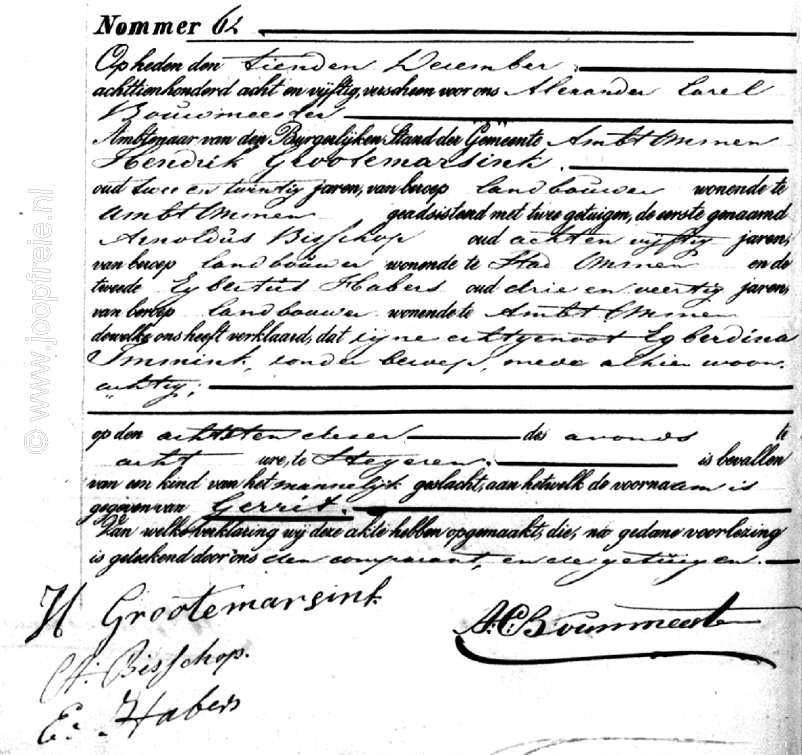 Nommer 62
Op heden den tienden December
achttienhonderd acht en vijftig, verscheen voor ons Alexander Carel
Bouwmeester
Ambtenaar van den Burgerlijken Stand der Gemeente Ambt Ommen
Hendrik Grootemarsink,
oud twee en twintig jaren, van beroep landbouwer wonende te
Ambt Ommen geadsisteerd met twee getuigen, de eerste genaamd
Arnoldus Bisschop oud acht en vijftig jaren,
van beroep landbouwer wonende te Stad Ommen en de
tweede Egbertus Habers oud drie en veertig jaren,
van beroep landbouwer wonende te Ambt Ommen
dewelke ons heeft verklaard, dat zijne echtgenoot Egberdina
Immink, zonder beroep, mede alhier woon-
achtig,
op den achtsten dezer des avonds te
acht ure, te Stegeren is bevallen
van een kind van het mannelijk geslacht, aan hetwelk de voornaam is
gegeven van Gerrit.
Van welke verklaring wij deze akte hebben opgemaakt, die, na gedane voorlezing
is geteekend door ons den comparant, en de getuigen.
H Grootemarsink
A.C. Bouwmeester
A. Bisschop.
E. Habers
© www.joopfreie.nl